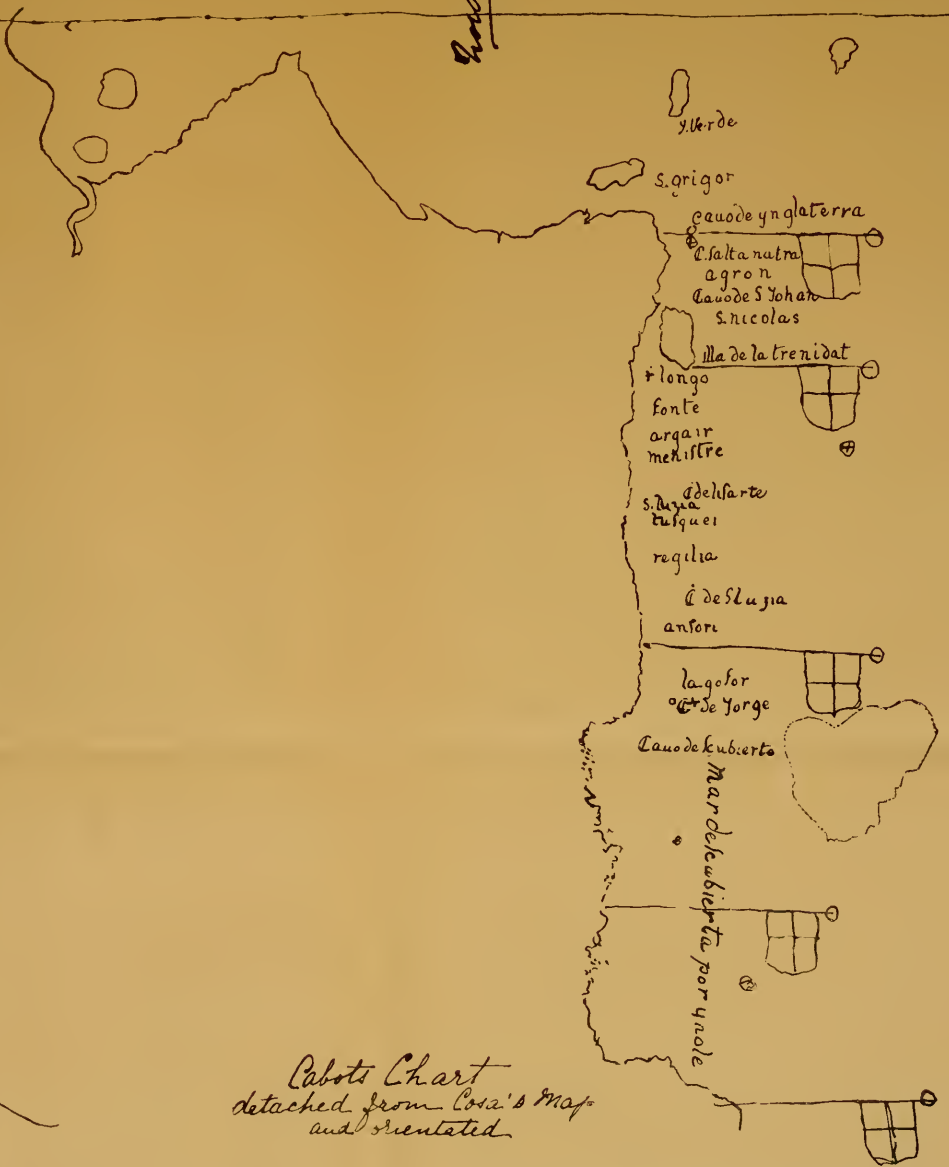 Y. Verde
S. grigor
Cauo de ynglaterra
C. salta natra
agron
Cauo de S Johan
S. nicolas
illa de la trenidat
r longo
fonte
argair
menistre
C delisarte
S. luzia
tusquei
regilia
C de S luzia
ansori
lagosor
C de Jorge
Cauo descubierto
Mar descubierta por
Cabots Chart
detached from Cosa's Map
and orientated